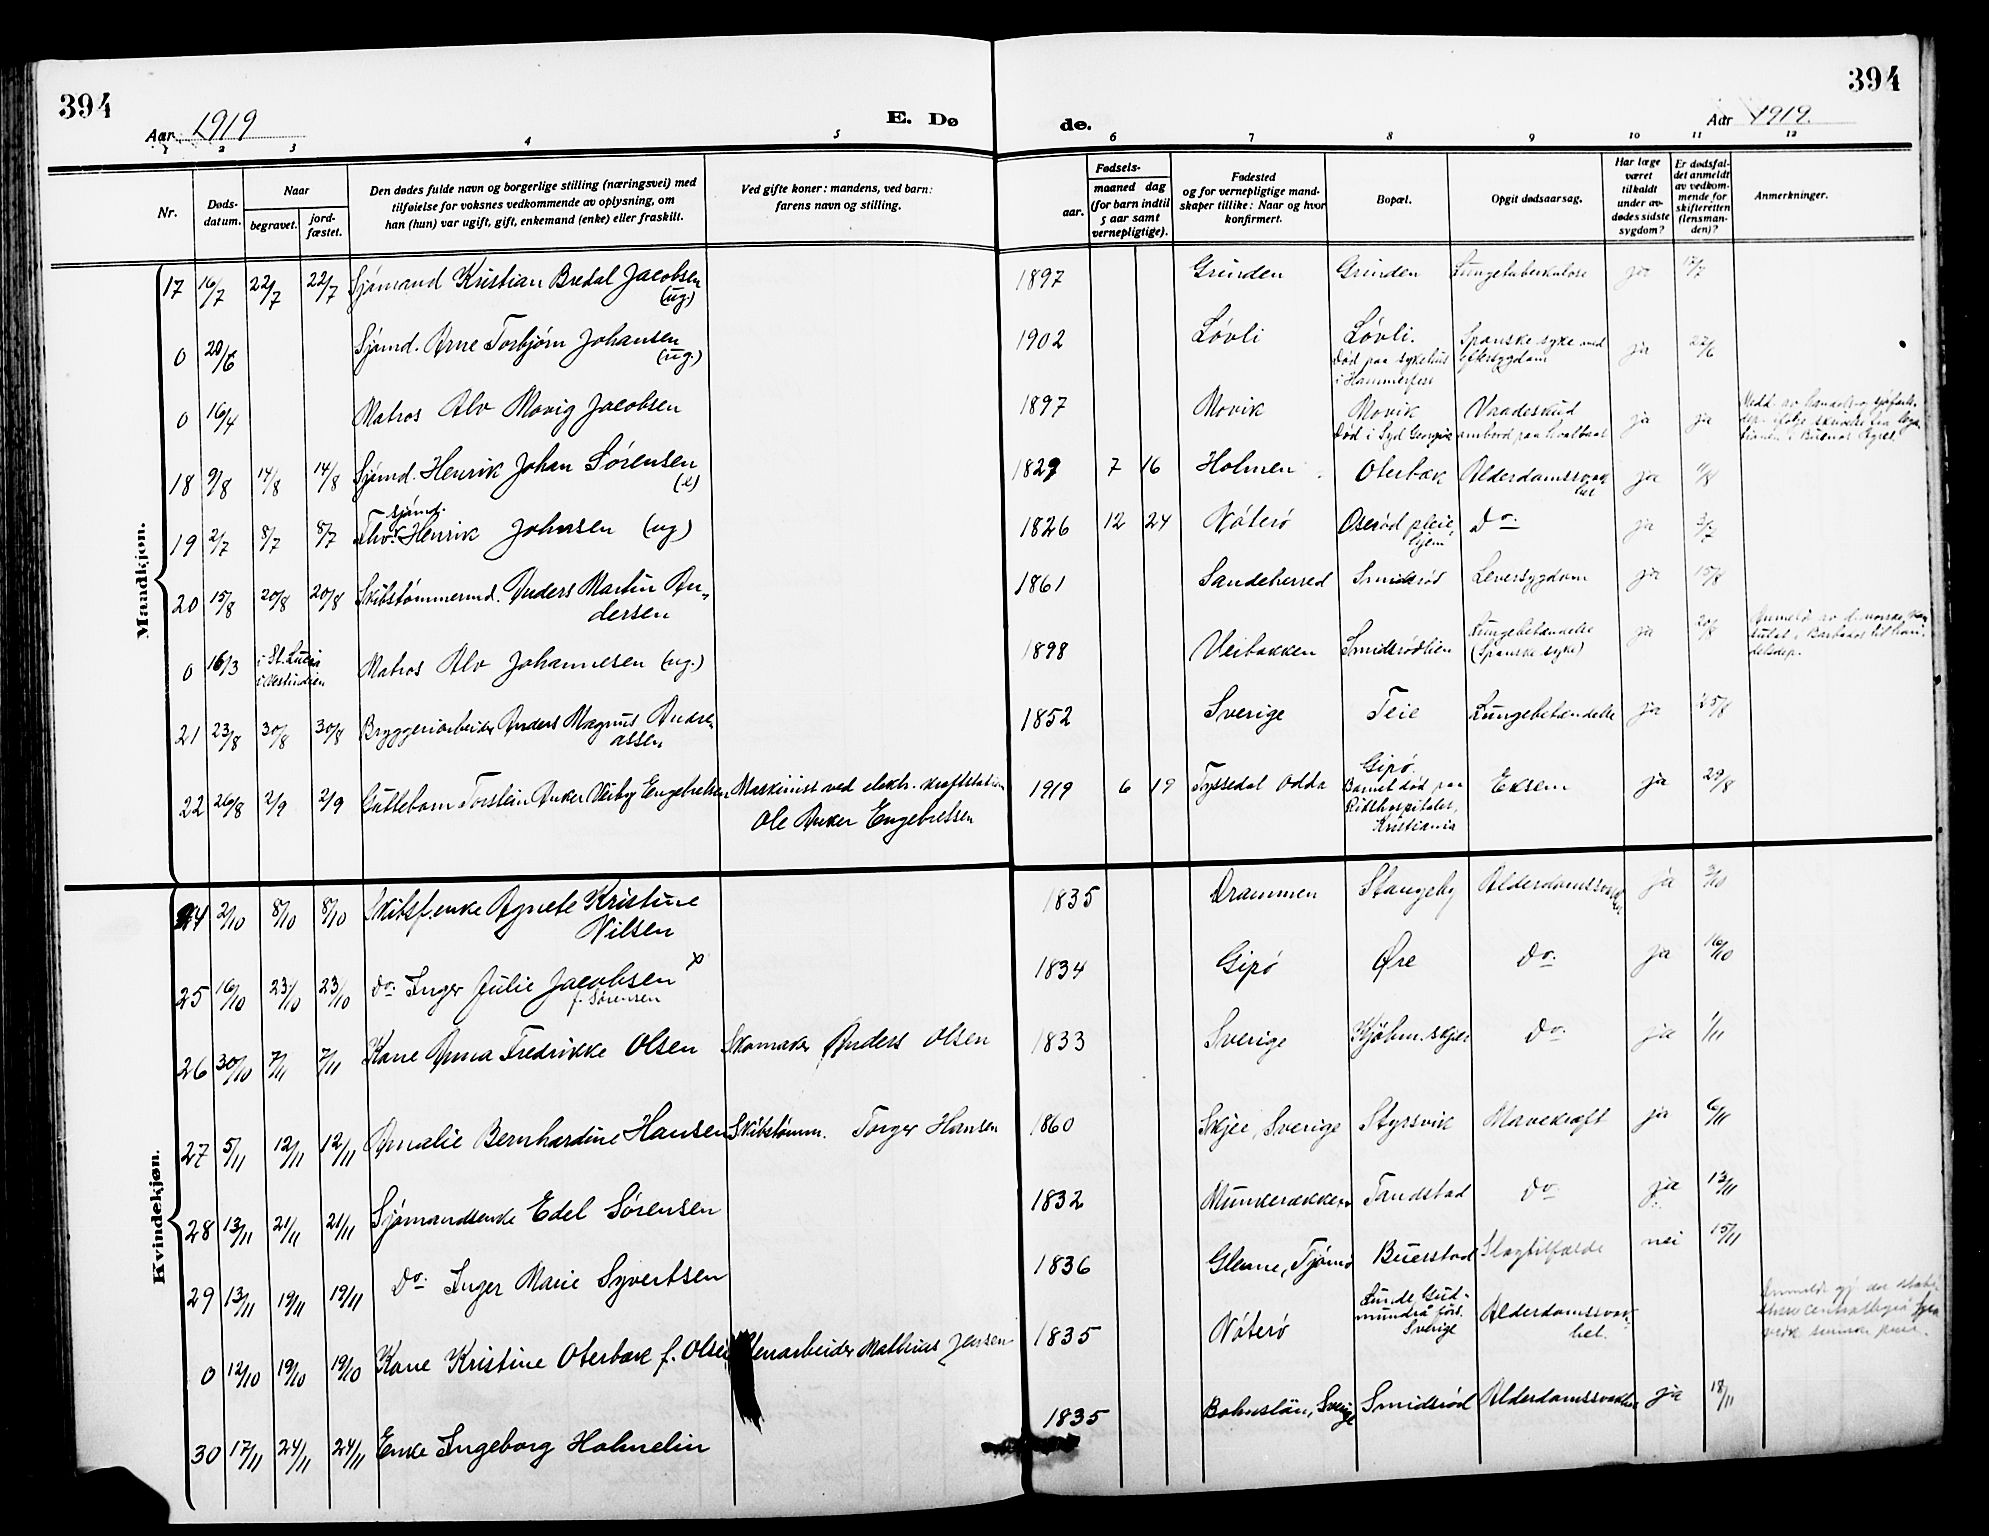 394
Aar 1919
E. Dø
de.
Aar 1919.
394
1 2 3 4 5 6 7 8 9 10 11 12
Nr.
Døds-
datum.
Naar
begravet.
jord-
fæstet.
Den dødes fulde navn og borgerlige stilling (næringsvei) med
tilføielse for voksnes vedkommende av oplysning, om
han (hun) var ugift, gift, enkemand (enke) eller fraskilt.
Ved gifte koner: mandens, ved barn:
farens navn og stilling.
Fødsels-
aar.
maaned dag
(for barn indtil
5 aar samt
vernepligtige).
Fødested
og for vernepligtige mand-
skaper tillike: Naar og hvor
konfirmert.
Bopæl.
Opgit dødsaarsag.
Har læge
været
tilkaldt
under av-
dødes sidste
sygdom?
Er dødsfal-
det anmeldt
av vedkom-
mende for
skifteretten
(lensman-
den)?
Anmerkninger.
Mandkjøn.
17 16/7 22/7 22/7 Sjømand Kristian Bredal Jacobsen 1897 Grinden Grinden Lungetuberkulose ja 17/7
(ug.)
0 20/6 Sjømd. Arne Torbjørn Johansen 1902 Løvli Løvli. Spanske syke med ja 27/6
(ug.) Død paa sykehus eftersygdom
i Hammerfest
0 16/4 Matros Alv Movig Jacobsen 1897 Movik Movik Vaadeskud ja ja
Død i Syd Georgia ombord paa hvalbaat
18 9/8 14/8 14/8 Sjømd. Henrik Johan Sørensen 1829 7 16 Holmen Oterbæk Alderdomssvak ja 11/8
(e) het
sjømd.
19 2/7 8/7 8/7 Thv. Henrik Johnsen (ug) 1826 12 24 Nøterø Oserød pleie Do. ja 3/7
hjem
20 15/8 20/8 20/8 Skibstømmermd. Anders Martin An- 1861 Sandeherred Smidsrød Leversygdom ja 15/8
dersen
0 16/3 i St. Lucia Matros Alv Johannesen (ug.) 1898 Veibakken Smidsrødlien Lungebetændelse ja
i Vestindien (Spanske syke)
21 23/8 30/8 30/8 Bryggeriarbeider Anders Magnus Andre- 1852 Sverige Teie Lungebetændelse ja 25/8
assen
22 26/8 2/9 2/9 Guttebarn Torstein Anker Veiby Engebretsen Maskinist ved elektr. kraftstation 1919 6 19 Tyssedal Odda Gipø. Eksem ja 29/8
Ole Anker Engebretsen Barnet død paa
Rikshospitalet,
Kristiania
Kvindekjøn.
24 2/10 8/10 8/10 Skibsf.enke Agnete Kristine 1835 Drammen Stangeby Alderdomssvakhet ja 3/10
Nilsen
25 16/10 23/10 23/10 Do. Inger Julie Jacobsen 1834 Gipø Øre Do. ja 16/10
f. Sørensen
26 30/10 7/11 7/11 Kone Anna Fredrikke Olsen Skomaker Anders Olsen 1833 Sverige Kjøbm.skjær Do. ja 1/11
27 5/11 12/11 12/11 Amalie Bernhardine Hansen Skibstømm. Torger Hansen 1860 Skjee, Sverige Styrsvik Mavekræft ja 6/11
28 13/11 21/11 21/11 Sjømandsenke Edel Sørensen 1832 Munkerækken Tandstad Do. ja 13/11
29 13/11 19/11 19/11 Do. Inger Marie Syvertsen 1836 Glenne, Tjømø Buerstad Slagtilfælde nei 15/11
0 12/10 19/10 19/10 Kone Kristine Oterbæk f. Olsen Stenarbeider Mathius Jensen 1835 Nøterø Lunde, Gud- Alderdomssvak-
mundrå förs. het.
Sverige
30 17/11 24/11 24/11 Enke Ingeborg Holmelin 1835 Bohuslän, Sverige Smidsrød Alderdomssvakhet ja 18/11